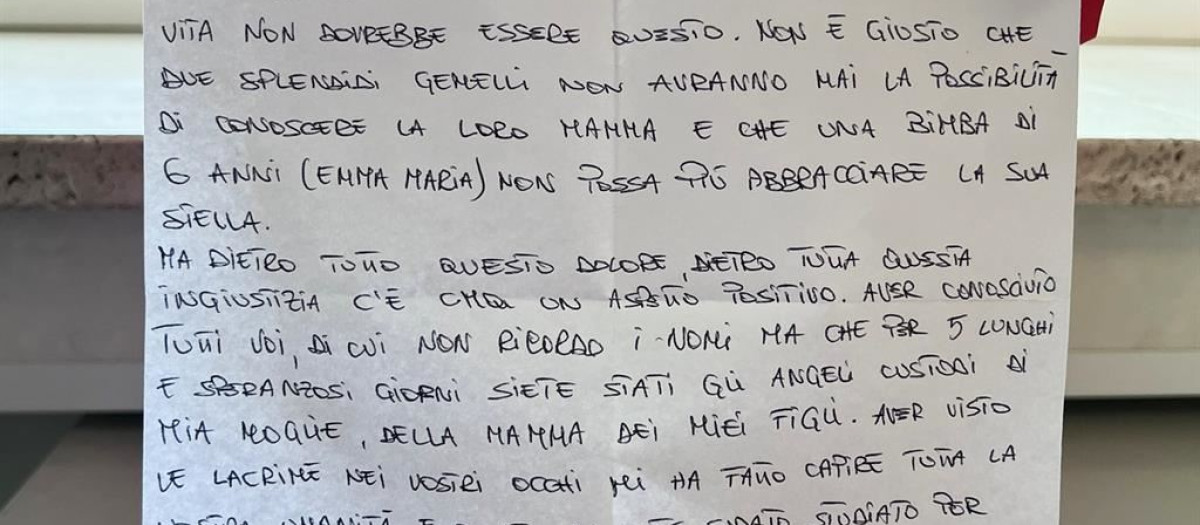 VITA NON DOVREBBE ESSERE QUESTO. NON È GIUSTO CHE
DUE SPLENDIDI GEMELLI NON AVRANNO MAI LA POSSIBILITÀ
DI CONOSCERE LA LORO MAMMA E CHE UNA BIMBA DI
6 ANNI (EMMA MARIA) NON POSSA PIÙ ABBRACCIARE LA SUA
STELLA.
MA DIETRO TUTTO QUESTO DOLORE, DIETRO TUTTA QUESTA
INGIUSTIZIA C'È UN ASPETTO POSITIVO. AVER CONOSCIUTO
TUTTI VOI, DI CUI NON RICORDO I NOMI MA CHE PER 5 LUNGHI
E SPERANZOSI GIORNI SIETE STATI GLI ANGELI CUSTODI DI
MIA MOGLIE, DELLA MAMMA DEI MIEI FIGLI. AVER VISTO
LE LACRIME NEI VOSTRI OCCHI MI HA FATTO CAPIRE TUTTA LA
VOSTRA UMANITÀ E STUDIATO PER